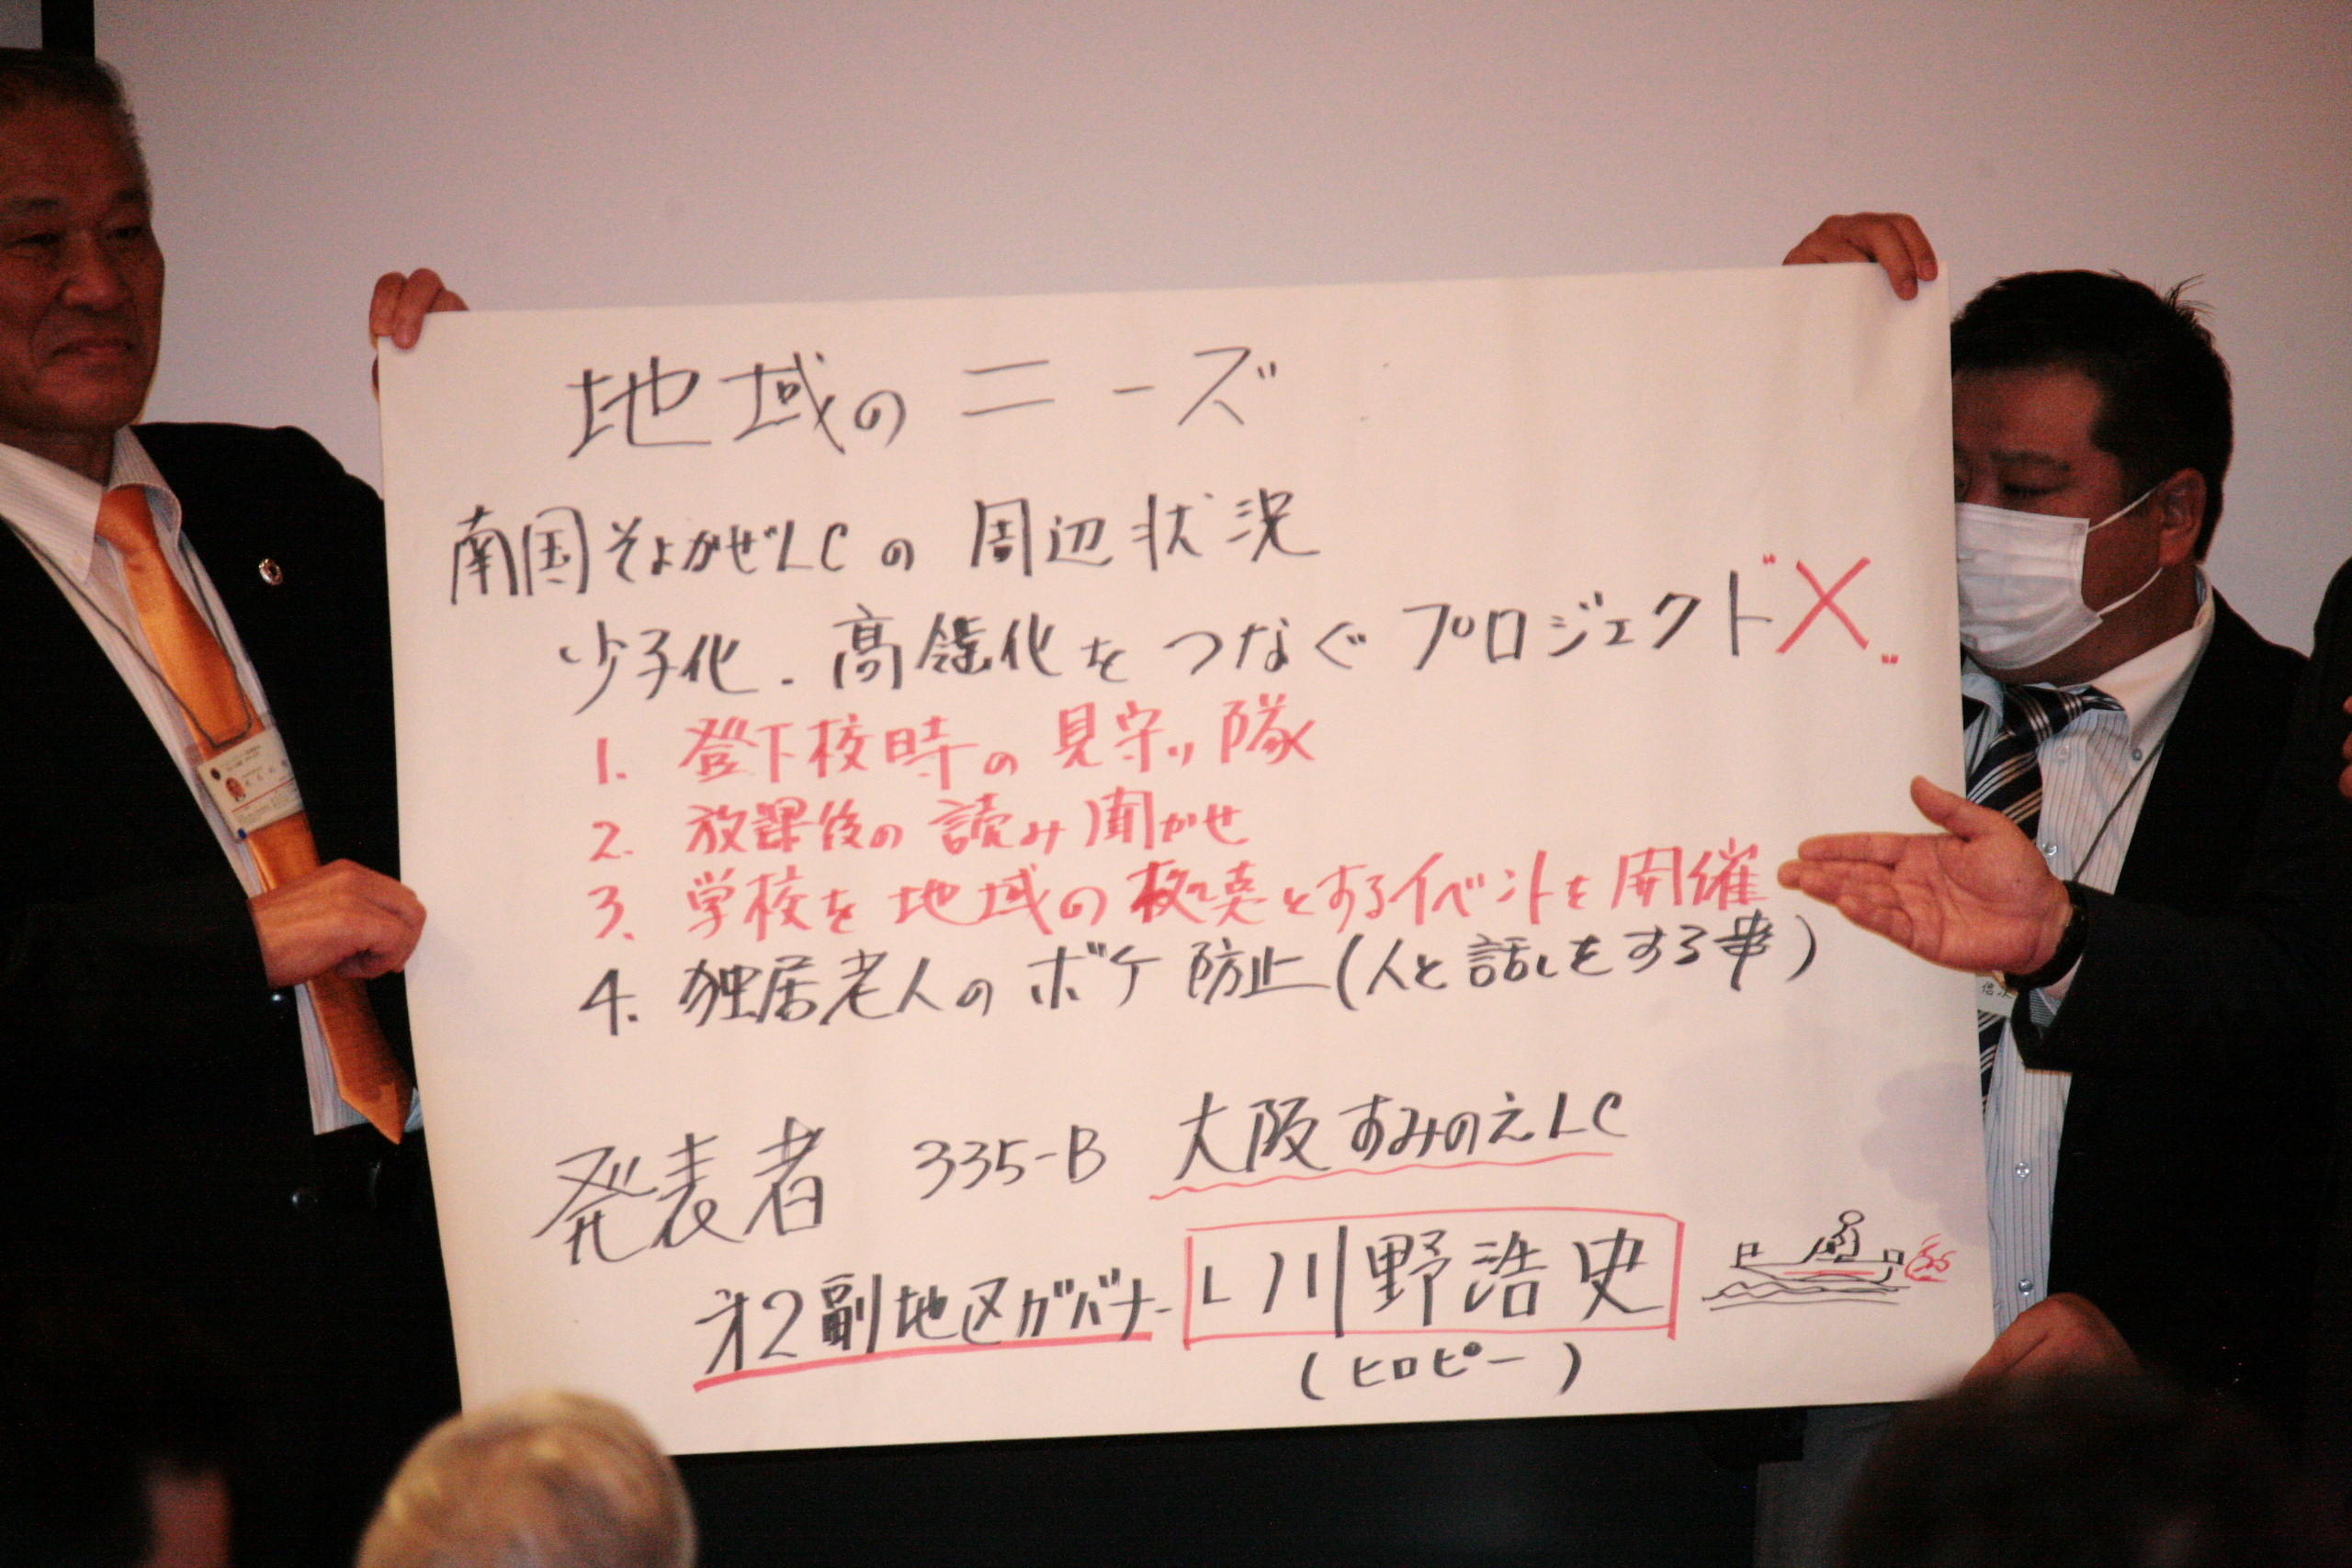 地域のニーズ
南国そよかぜLCの周辺状況
少子化.高齢化をつなぐプロジェクト"X"
1. 登下校時の見守り隊
2. 放課後の読み聞かせ
3. 学校を地域の拠点とするイベントを開催
4. 独居老人のボケ防止(人と話しをする事)
発表者 335-B 大阪すみのえLC
才2副地区ガバナー L川野浩史
(ヒロピー)